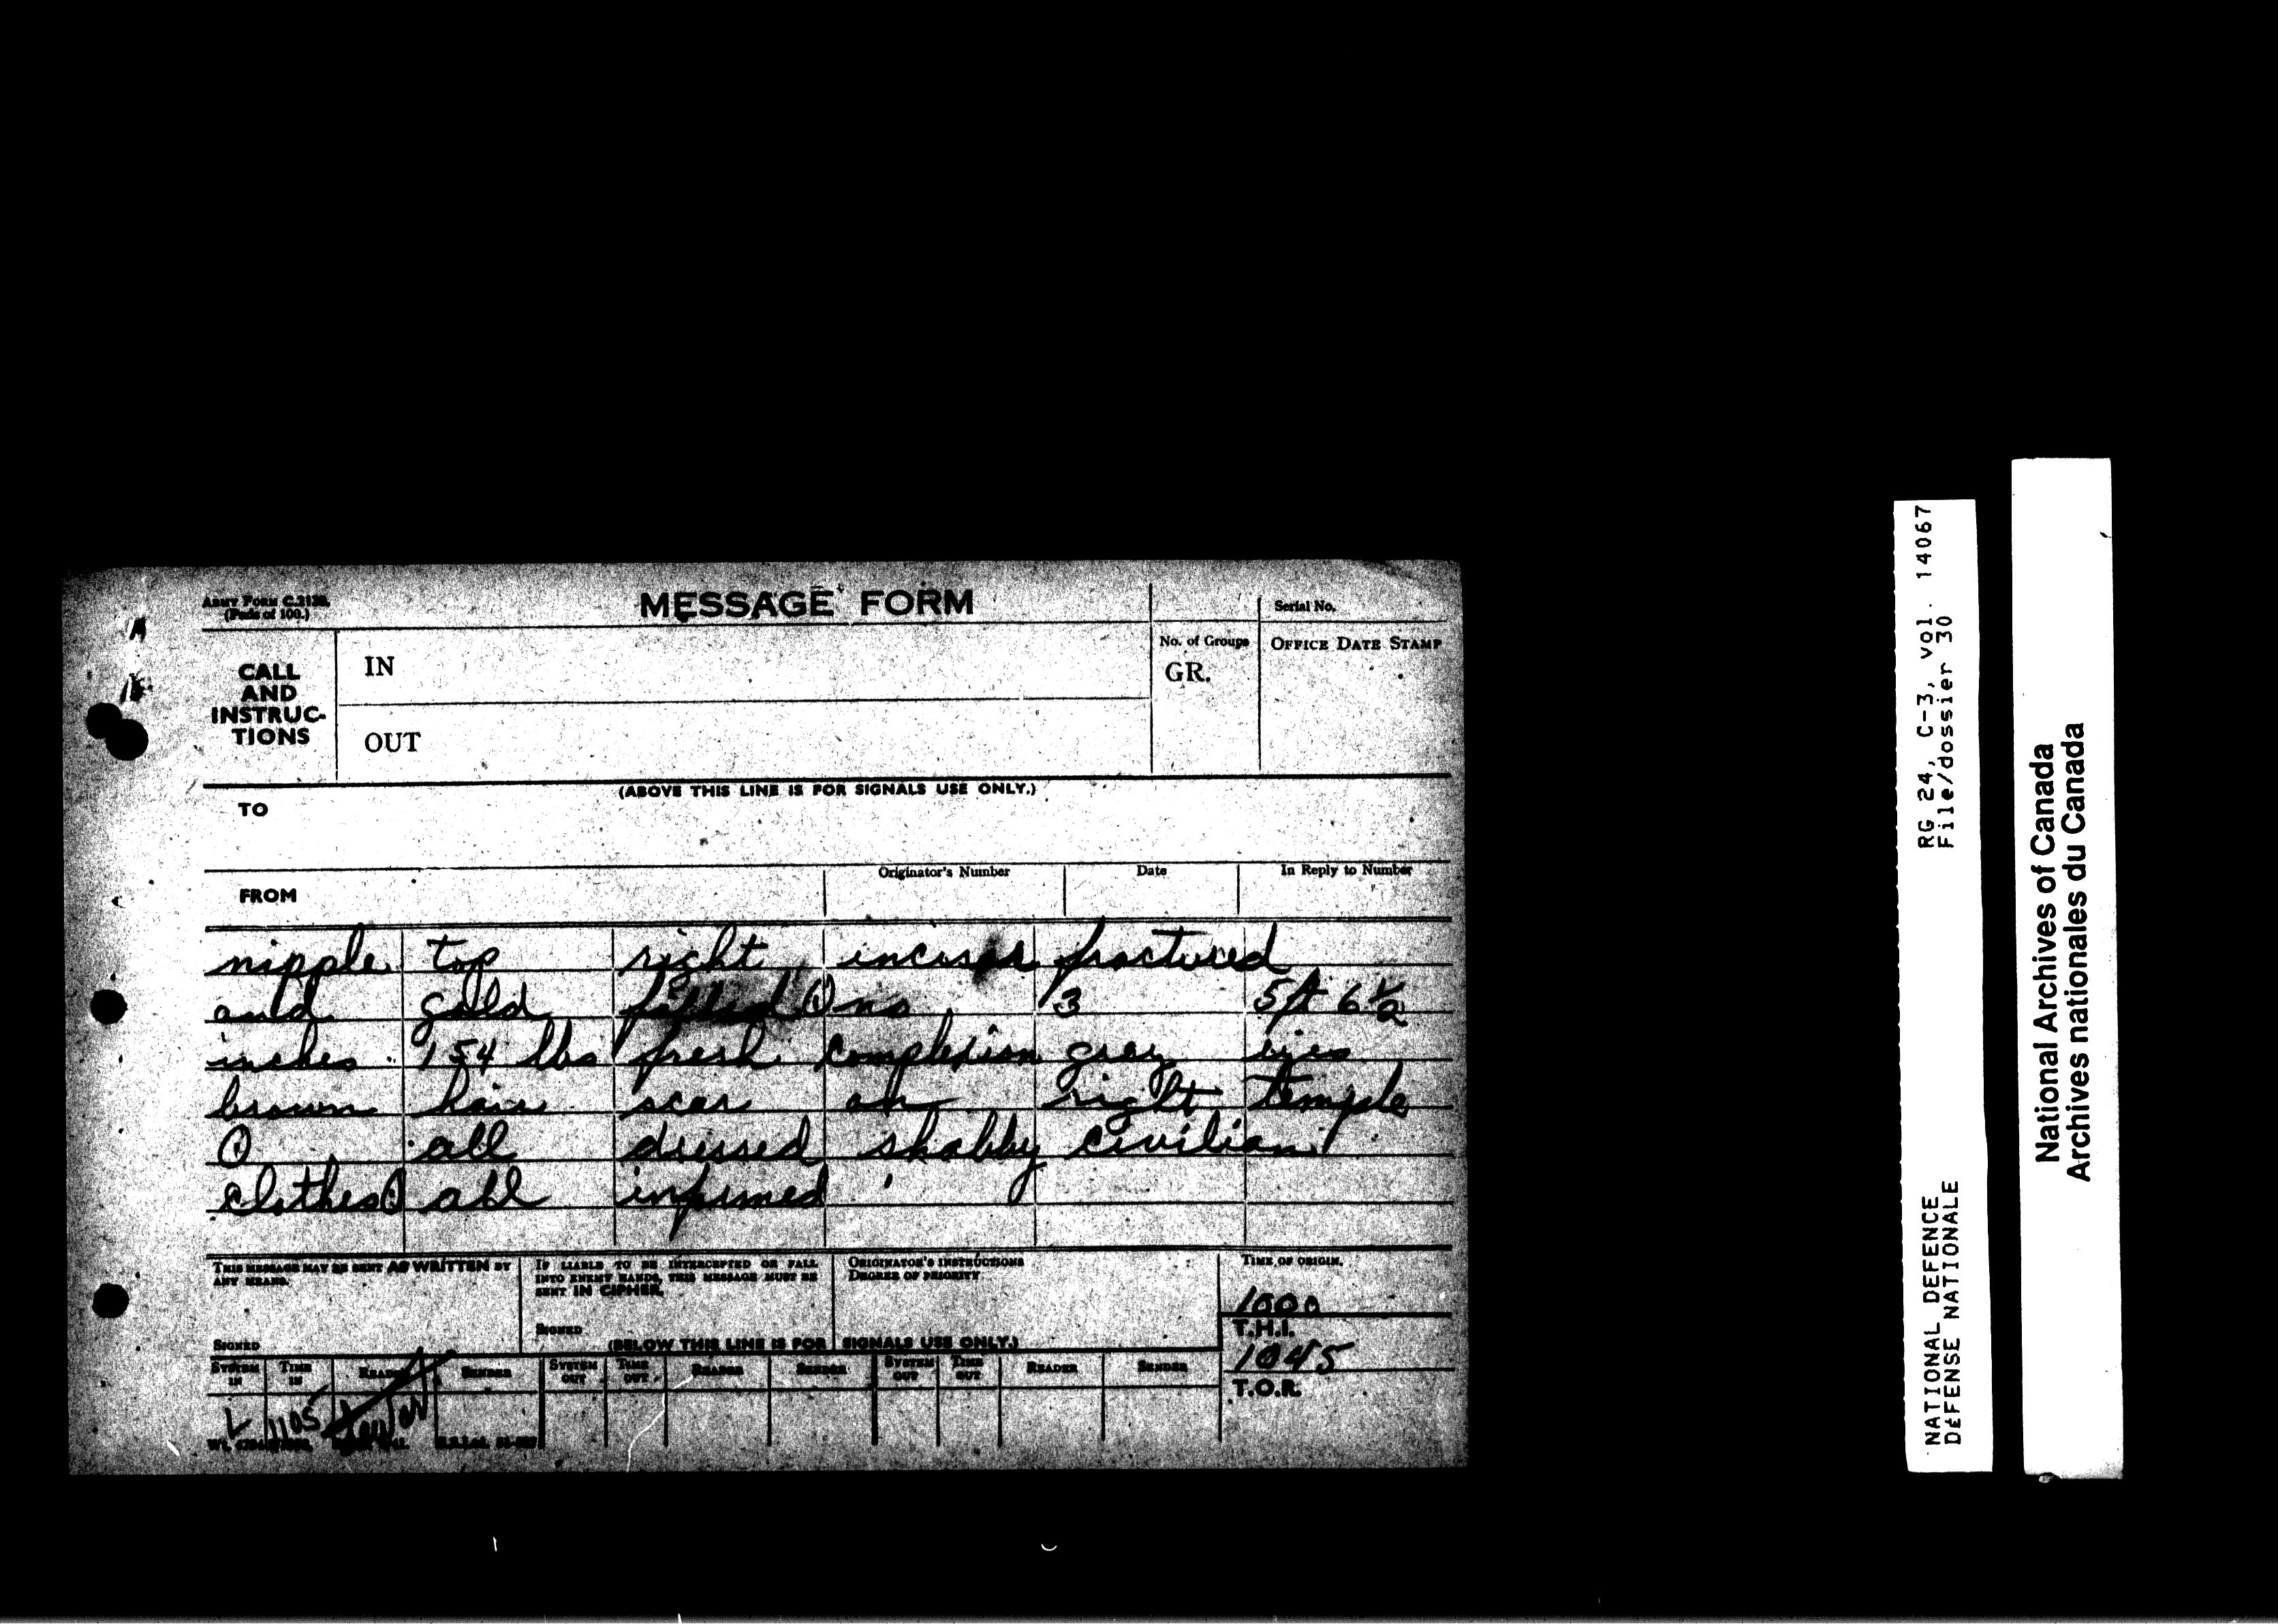 ARMY FORM C.2128.
(Pads of 100.)
MESSAGE FORM
Serial No.
CALL AND INSTRUC-TIONS
IN
OUT
No. of Groups
GR.
OFFICE DATE STAMP
(ABOVE THIS LINE IS FOR SIGNALS USE ONLY.)
TO
FROM
Originator's Number
Date
In Reply to Number
nipple top right incisor fractured
and gold filled no 3 5ft 6½
inches 154 lbs fresh complexion grey eyes
brown hair scar on right temple
all dressed shabby civilian
clothes all informed
THIS MESSAGE MAY BE SENT AS WRITTEN BY ANY MEANS.
SIGNED
IF LIABLE TO BE INTERCEPTED OR FALL INTO ENEMY HANDS, THIS MESSAGE MUST BE SENT IN CIPHER.
SIGNED
ORIGINATOR'S INSTRUCTIONS
DEGREE OF PRIORITY
TIME OF ORIGIN.
1000
T.H.I.
1045
T.O.R.
(BELOW THIS LINE IS FOR SIGNALS USE ONLY.)
SYSTEM IN TIME IN READER SENDER SYSTEM OUT TIME OUT READER SENDER SYSTEM OUT TIME OUT READER SENDER
L 1105
RG 24, C-3, vol. 14067
File/dossier 30
NATIONAL DEFENCE
DÉFENSE NATIONALE
National Archives of Canada
Archives nationales du Canada